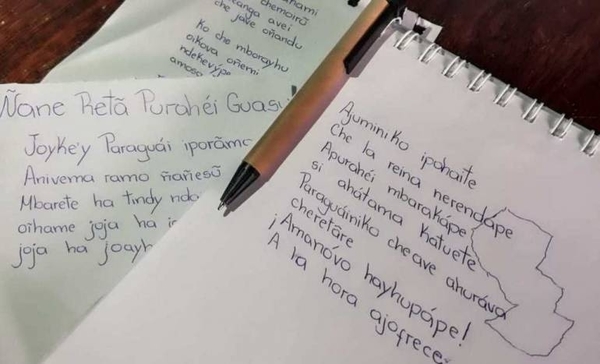 chemoirũ
canga avei
che jave oñandu
Ko che mborayhu
oikova oñemi
ndekevýpe
Ñane Retã Purahéi Guasu
Joyke'y Paraguái iporãmc
Anivema ramo ñañesũ
Mbarete ha tindy
oihame joja ha
joja ha joayh
Ajuminiko ipohaite
Che la reina nerendápe
Apurahéi mbarakápe
si ahátama katuete
Paraguáiniko che ave ahuráva
cheretãre
¡Amanóvo hayhupápe!
A la hora ajofrece